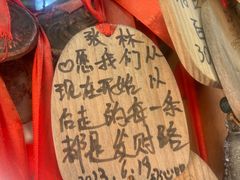 张林
♡愿我们从
现在开始 以
后走的每一条
都是发财路
2023.6.19